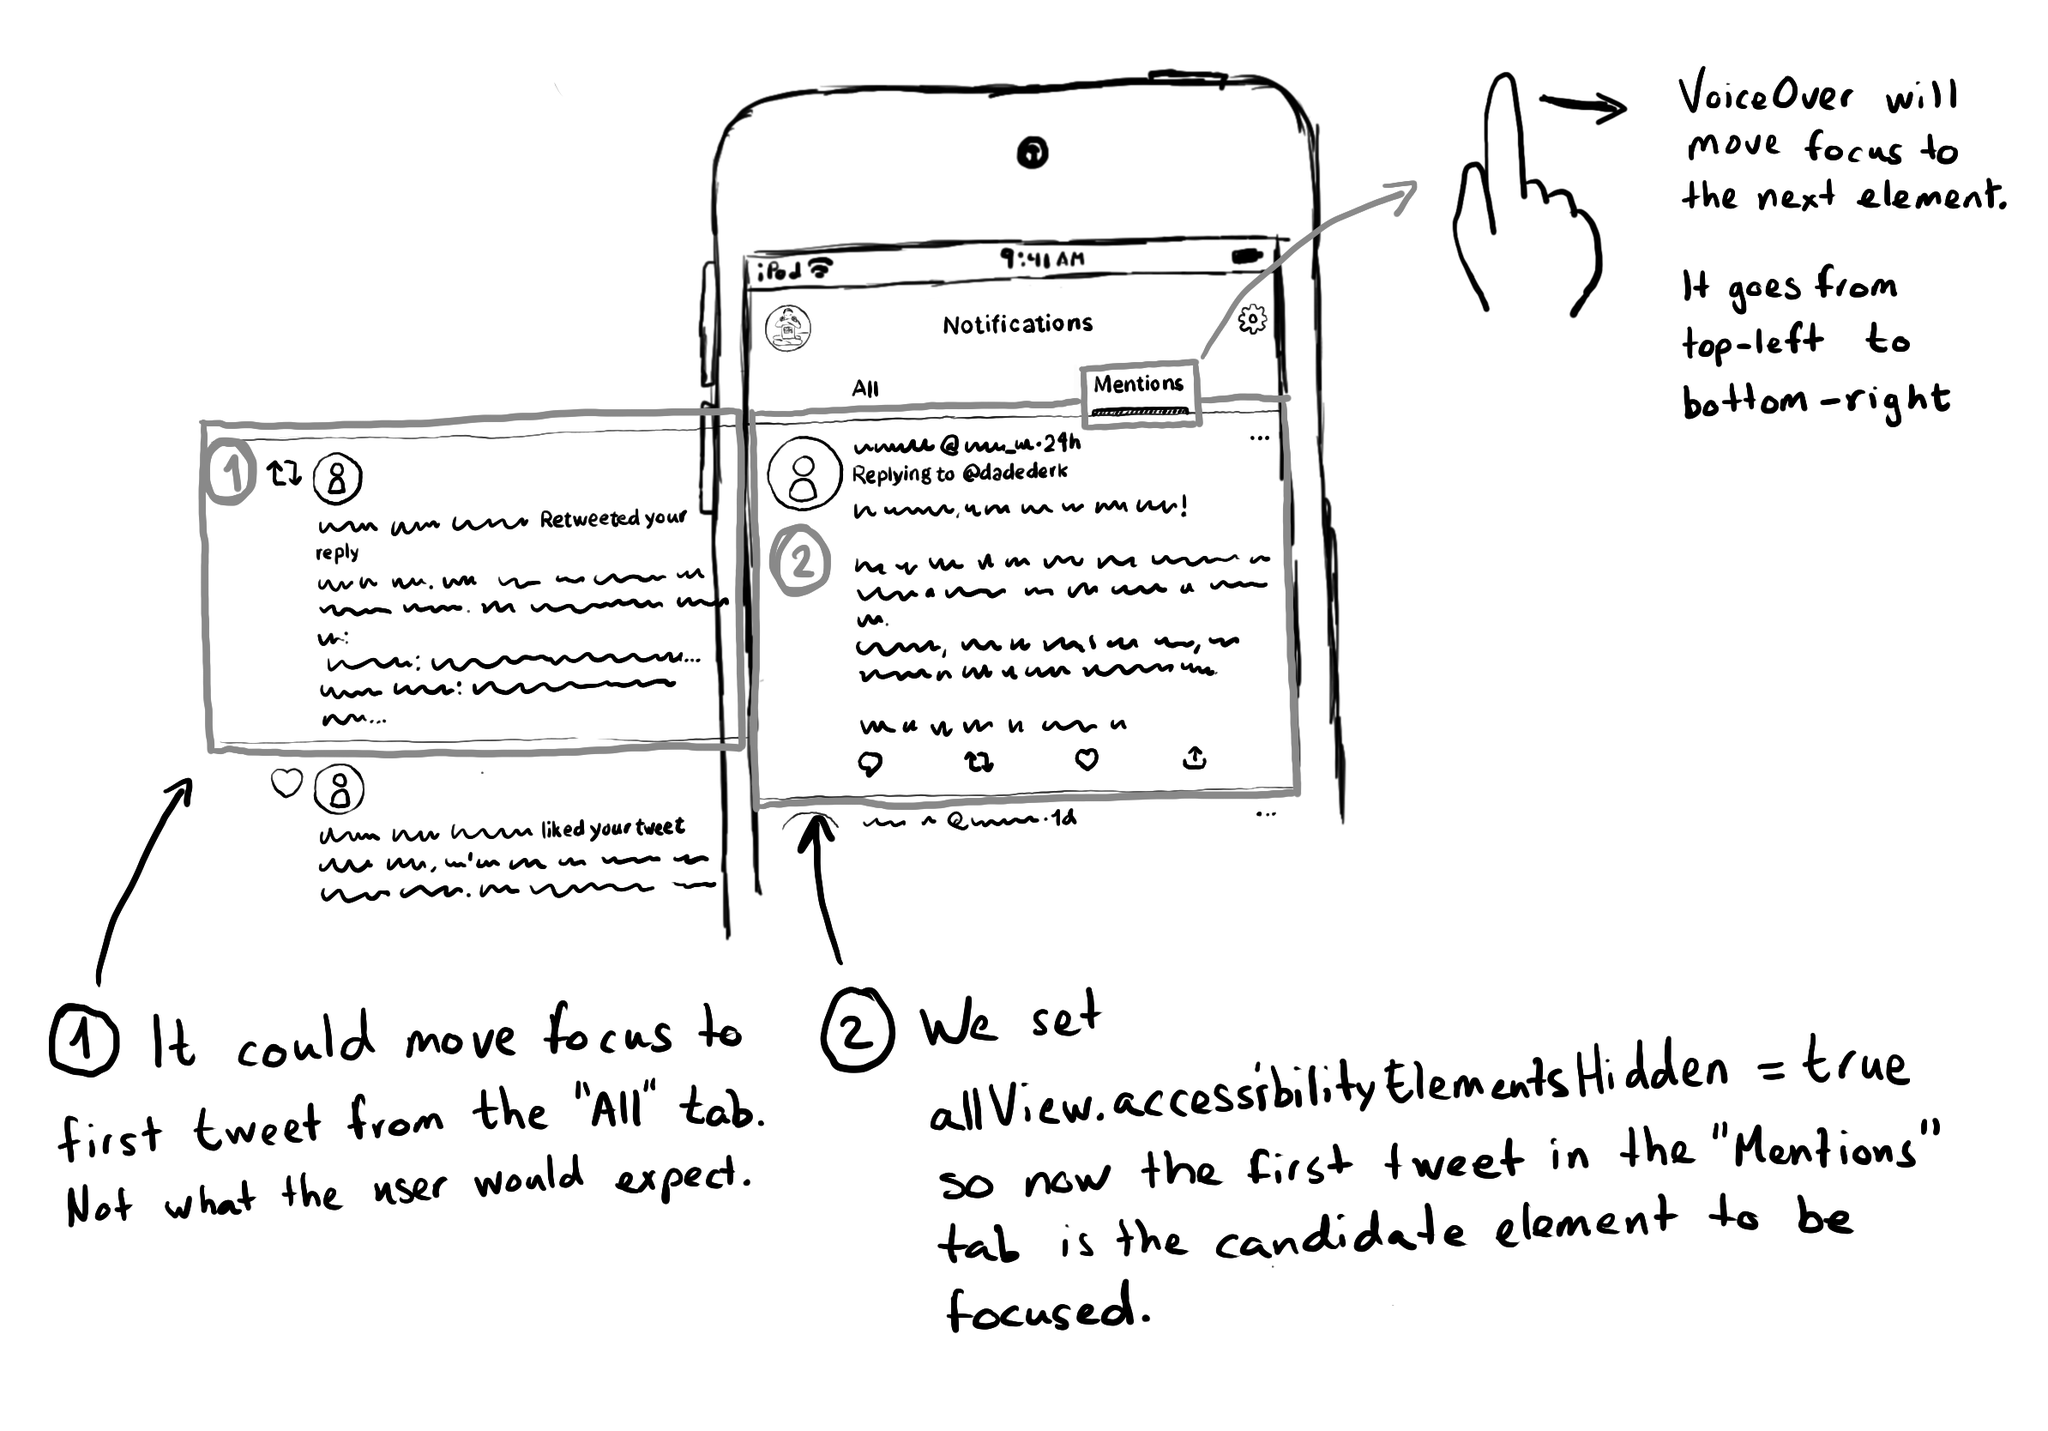 VoiceOver will
move focus to
the next element.
It goes from
top-left to
bottom-right
iPod
9:41 AM
Notifications
All
Mentions
1
Retweeted your
reply
liked your tweet
@ · 24h
Replying to @dadederk
2
@ · 1d
1 It could move focus to
first tweet from the "All" tab.
Not what the user would expect.
2 We set
allView.accessibilityElementsHidden = true
so now the first tweet in the "Mentions"
tab is the candidate element to be
focused.